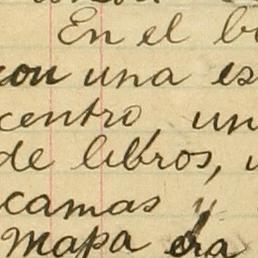 En el
una es
centro, un
de libros,
camas y
Mapa era